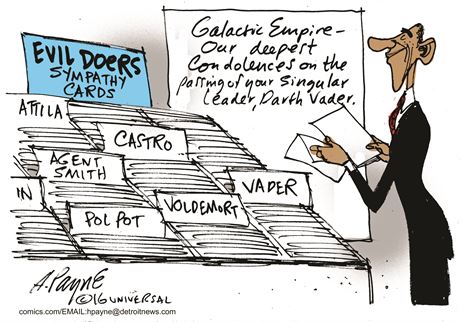 Galactic Empire–
Our deepest
Condolences on the
passing of your Singular
Leader, Darth Vader.
EVIL DOERS
SYMPATHY
CARDS
ATTILA
CASTRO
AGENT
SMITH
VADER
IN
VOLDEMORT
POL POT
A.Payne
©16 UNIVERSAL
comics.com/EMAIL:hpayne@detroitnews.com